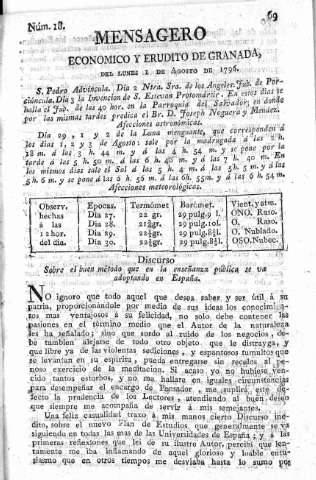 Núm. 18.
69
MENSAGERO
ECONOMICO Y ERUDITO DE GRANADA,
DEL LUNES 1 DE AGOSTO DE 1796.
S. Pedro Advíncula. Dia 2 Ntra. Sra. de los Angeles. Jub. de Por-
ciúncula. Dia 3 la Invencion de S. Estevan Protomártir. En estos dias se
halla el Jub. de las 40 hor. en la Parroquia del Salvador; en donde
por las mismas tardes predica el Br. D. Joseph Noguera y Mendez.
Afecciones astronómicas.
Dia 29, 1 y 2 de la Luna menguante, que corresponden á
los dias 1, 2 y 3 de Agosto: sale por la madrugada á las 2 h.
18 m. á las 3 h. 44 m. y á las 4 h. 54 m. y se pone por la
tarde á las 5 h. 50 m. á las 6 h. 48 m. y á las 7 h. 40 m. En
los mismos dias sale el Sol á las 5 h. 4 m. á las 5 h. 5 m. y á las
5 h. 6 m. y se pone á las 6 h. 56 m. á las 6 h. 55 m. y á las 6 h. 54 m.
Afecciones meteorológicas.
Observ. Epocas. Termómet Barómet. Vient. y atm.
hechas Dia 27. 22 gr. 29 pulg. 9 l. ONO. Raso.
á las Dia 28. 29 pulg. 10l. O. Raso.
12 hor. Dia 29. 29 pulg. O. Nublado.
del dia. Dia 30. 29 pulg. OSO. Nubec.
Discurso
Sobre el buen método que en la enseñanza pública se va
adoptando en España.
No ignoro que todo aquel que desea saber y ser útil á su
patria, proporcionándole por medio de sus ideas los conocimien-
tos mas ventajosos á su felicidad, no solo debe contener las
pasiones en el término medio que el Autor de la naturaleza
les ha señalado; sino que sordo al ruido de los negocios, de-
be tambien alejarse de todo otro objeto que le distrayga, y
que libre ya de las violentas sediciones, y espantosos tumultos que
se levantan en su espíritu, pueda entregarse sin recelos al pe-
noso exercicio de la meditacion. Si acaso yo no hubiese ven-
cido tantos estorbos, y no me hallare en iguales circunstancias
para desempeñar el encargo de Pensador, me suplirá este de-
fecto la prudencia de los Lectores, atendiendo al buen deseo
que siempre me acompaña de servir á mis semejantes.
Una feliz casualidad traxo á mis manos cierto Discurso iné-
dito, sobre el nuevo Plan de Estudios que generalmente se va
siguiendo en todas las mas de las Universidades de España; y á las
primeras reflexîones que leí de su ilustre Autor, percibí que len-
tamente me iba inflamando de aquel glorioso y loable entu-
siasmo que en otros tiempos me desvelaba hasta lo sumo por